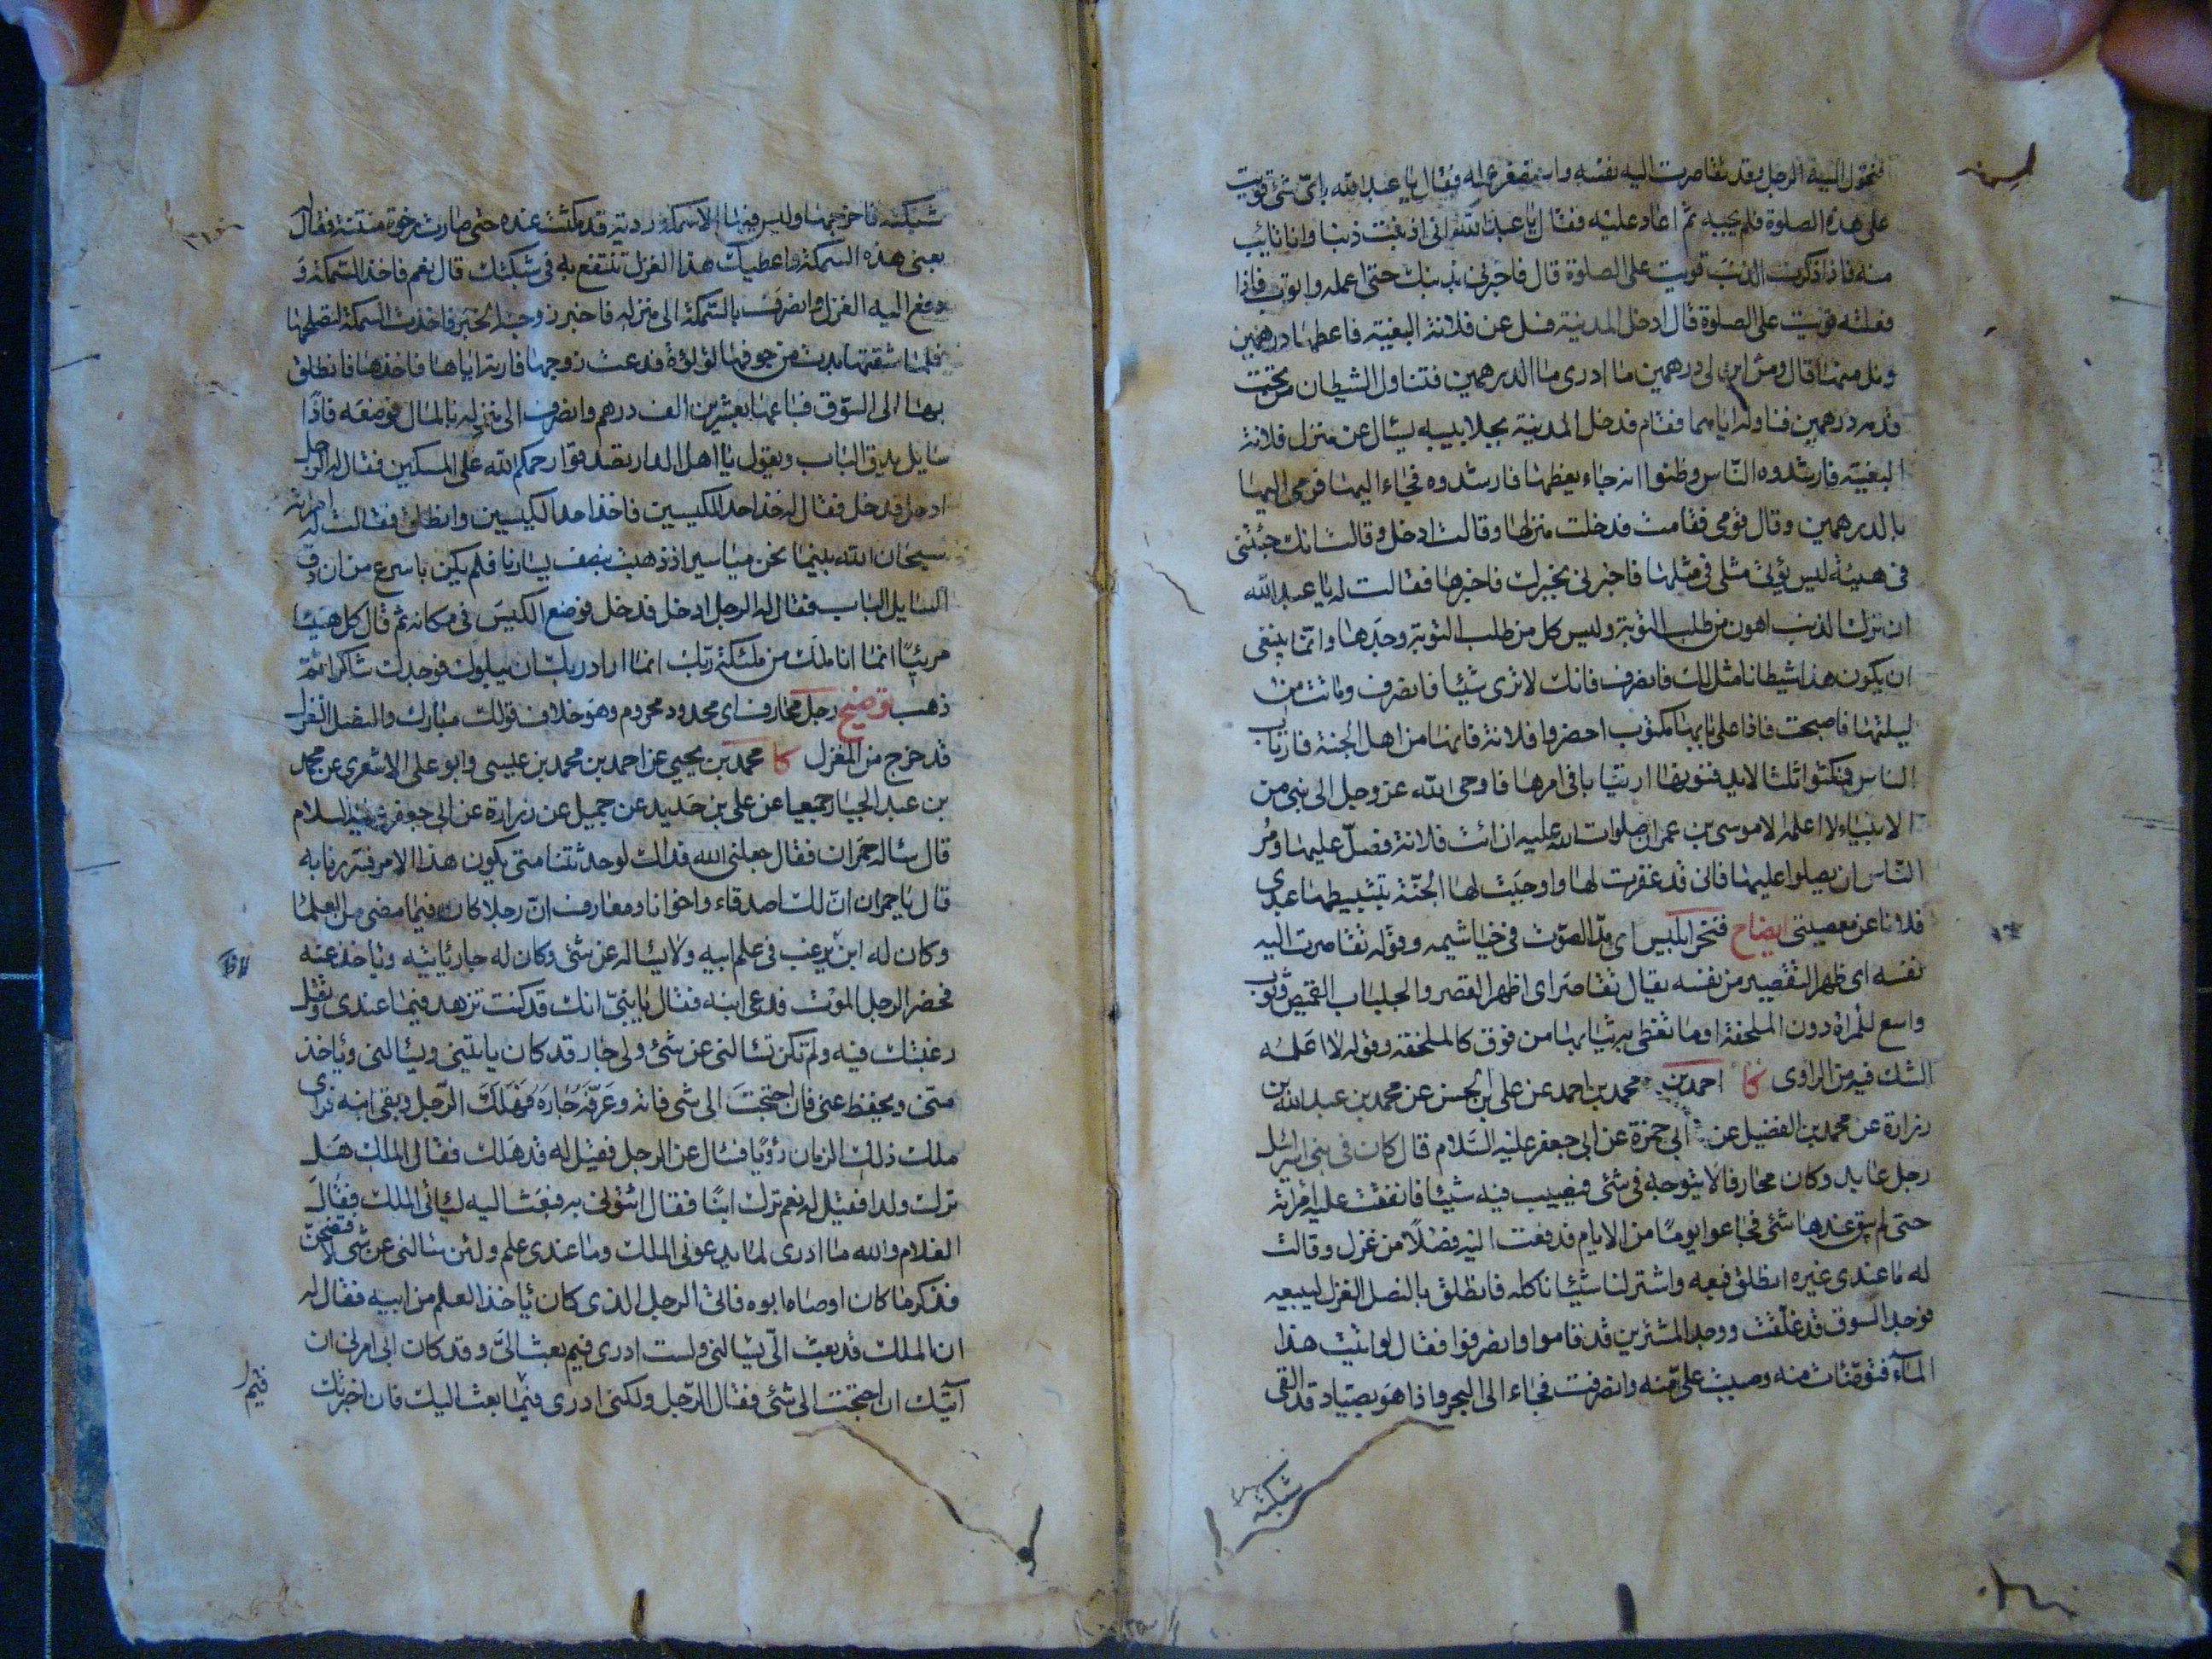 فتحول اليه الرجل وقد تقاصرت اليه نفسه واستصغر عمله فقال يا عبد الله باىّ شئ قويت
على هذه الصلوة فلم يجبه ثم اعاد عليه فقال يا عبد الله انى اذنبت ذنبا وانا تائب
منه فاذا ذكرت الذنب قويت على الصلوة قال فاخبرنى بذنبك حتى اعمله واتوب فاذا
فعلته قويت على الصلوة قال ادخل المدينة فسل عن فلانة البغية فاعطها درهمين
ونل منها قال ومن اين لى درهمين ما ادرى ما الدرهمين فتناول الشيطان من تحت
قدمه درهمين فناوله اياهما فقام فدخل المدينة بجلابيبه يسئال عن منزل فلانة
البغية فارشدوه النّاس وظنوا انه جاء يعظها فارشدوه فجاء اليها فرمى اليها
بالدرهمين وقال قومى فقامت فدخلت منزلها وقالت ادخل وقالت انك جئتنى
فى هيئة ليس يؤتى مثلى فى مثلها فاخبرنى بخبرك فاخبرها فقالت له يا عبد الله
ان ترك الذنب اهون من طلب التوبة وليس كل من طلب التوبة وجدها وانّما ينبغى
ان يكون هذا شيطانا مثل لك فانصرف فانك لا ترى شيئا فانصرف وماتت من
ليلتها فاصبحت فاذا على بابها مكتوب احضروا فلانة فانها من اهل الجنة فارتاب
الناس فمكثوا ثلثا لا يدفنونها ارتيابا فى امرها فاوحى الله عز وجل الى نبى من
الانبياء لا اعلمه الا موسى بن عمران صلوات الله عليه ان ائت فلانة فصلّ عليها ومُر
النّاس ان يصلوا عليها فانى قد غفرت لها واوجبت لها الجنّة بتثبيطها عبدى
فلانا عن معصيتى ايضاح فنخر ابليس اى مدّ الصوت فى خياشيمه وقوله تقاصرت اليه
نفسه اى ظهر التقصير من نفسه يقال تقاصر اى اظهر القصر والجلباب القميص وثوب
واسع للمراة دون الملحفة او ما تغطى به ثيابها من فوق كالملحفة وقوله لا اعلمه
الشك فيه من الراوى كا احمد بن محمد بن احمد عن على بن الحسن عن محمد بن عبد الله بن
زرارة عن محمد بن الفضيل عن ابى حمزة عن ابى جعفر عليه السّلام قال كان فى بنى اسرائيل
رجل عابد وكان محارفا لا يتوجه فى شئ فيصيب فيه شيئا فانفقت عليه امراته
حتى لم يبق عندها شئ فجاعوا يومًا من الايام فدفعت اليه فضلًا من غزل وقالت
له ما عندى غيره انطلق فبعه واشتر لنا شيئا ناكله فانطلق بالنصل الغزل ليبيعه
فوجد السوق قد غلّقت ووجد المشترين قد قاموا وانصرفوا فقال لو اتيت هذا
المآء فتوضّات منه وصببت علىّ منه وانصرفت فجاء الى البحر واذا هو بصيّاد قد القى
شبكته
شبكته فاخرجها وليس فيها الا سمكة رديّة قد مكثت عنده حتى صارت رخوة منتنة فقال له
بعنى هذه السمكة واعطيك هذا الغزل تنتفع به فى شبكتك قال نعم فاخذ السّمكة و
دفع اليه الغزل وانصرف بالسّمكة الى منزله فاخبر زوجته الخبر فاخذت السمكة لتصلحها
فلمّا شقتها بدت من جوفها لؤلؤة فدعت زوجها فارته اياها فاخذها فانطلق
بها الى السّوق فباعها بعشرين الف درهم وانصرف الى منزله بالمال فوضعه فاذا
سايل يدق الباب ويقول يا اهل الدار تصدقوا رحمكم الله على المسكين فقال له الرجل
ادخل فدخل فقال له خذ احد الكيسين فاخذ احد الكيسين وانطلق فقالت له امراته
سبحان الله بينما نحن مياسير اذ ذهبت بنصف يسارنا فلم يكن باسرع من ان دق
السايل الباب فقال له الرجل ادخل فدخل فوضع الكيس فى مكانه ثم قال كل هنيئا
مريئًا انما انا ملك من ملئكة ربّك انما اراد ربك ان يبلوك فوجدك شاكرا ثمّ
ذهب توضيح رجل محارف اى محدود محروم وهو خلاف قولك مبارك والنصل الغزل
قد خرج من المغزل كا محمد بن يحيى عن احمد بن محمد بن عيسى وابو على الاشعرى عن محمد
بن عبد الجبار جميعا عن على بن حديد عن جميل عن زرارة عن ابى جعفر عليه السلام
قال ساله حمران فقال جعلنى الله فداك لو حدثتنا متى يكون هذا الامر فسررنا به
قال يا حمران انّ لك اصدقاء واخوانا ومعارف انّ رجلا كان فيما مضى من العلما
وكان له ابن يرغب فى علم ابيه ولا يسئاله عن شئ وكان له جار ياتيه وياخذ عنه
فحضر الرجل الموت فدعى ابنه فقال يا بنىّ انك قد كنت تزهد فيما عندى وتقل
رغبتك فيه ولم تكن تسالنى عن شئ ولى جار قد كان ياتينى ويسالنى وياخذ
منّى ويحفظ عنى فان احتجت الى شئ فاته وعرّفه جاره فهلك الرّجل وبقى ابنه فراى
ملك ذلك الزمان رؤيا فسال عن الرجل فقيل له قد هلك فقال الملك هل
ترك ولدا فقيل له نعم ترك ابنًا فقال ائتونى به فبعث اليه لياتى الملك فقال
الغلام والله ما ادرى لما يدعونى الملك وما عندى علم ولئن سالنى عن شئ لافتضحنّ
فذكر ما كان اوصاه ابوه فاتى الرجل الذى كان ياخذ العلم من ابيه فقال له
ان الملك قد بعث الىّ يسالنى ولست ادرى فيم بعث الىّ وقد كان ابى امرنى ان
آتيك ان احتجت الى شئ فقال الرّجل ولكنى ادرى فيما بعث اليك فان اخبرتك